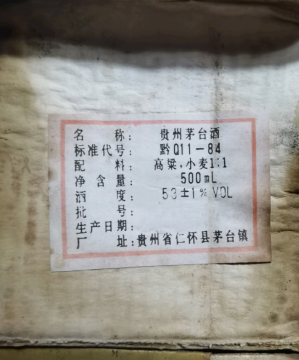 名 称: 贵州茅台酒
标准代号: 黔Q11-84
配 料: 高粱,小麦1:1
净含量: 500mL
酒 度: 53±1% VOL
批 号:
生产日期:
厂 址: 贵州省仁怀县茅台镇